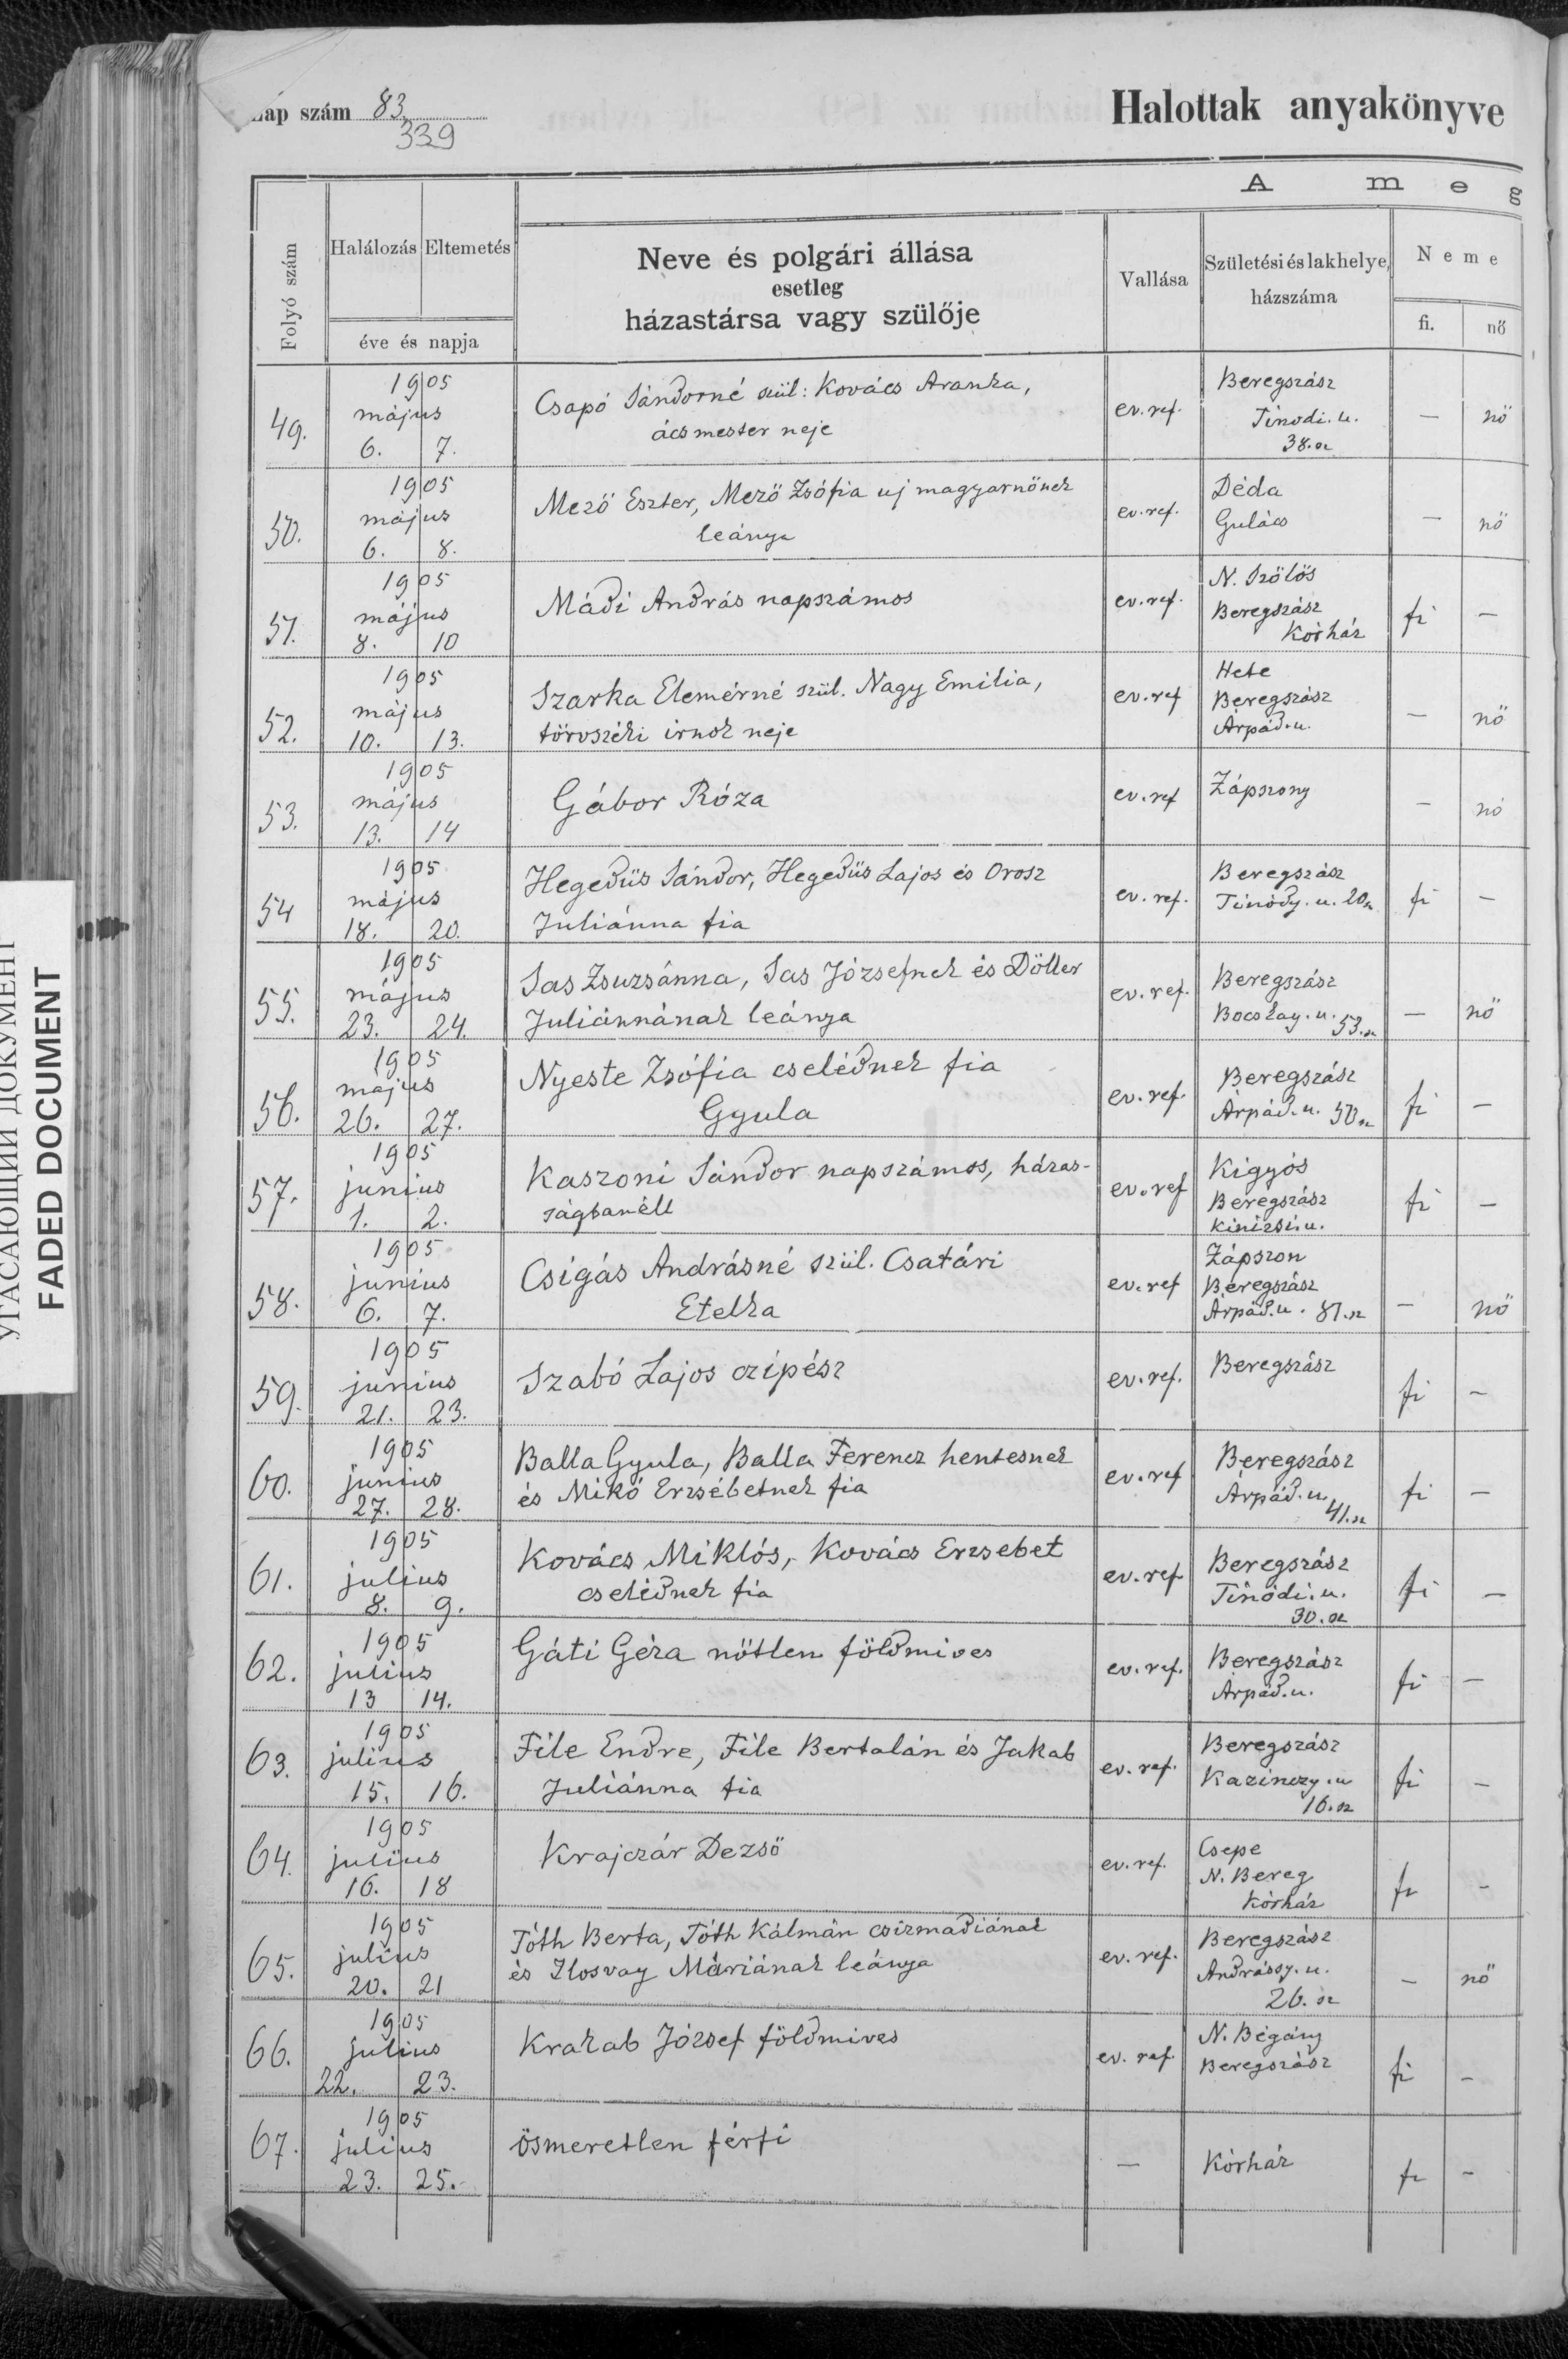 Lap szám 83.
339
Halottak anyakönyve
A m e g
Folyó szám
Halálozás Eltemetés
éve és napja
Neve és polgári állása
esetleg
házastársa vagy szülője
Vallása
Születési és lakhelye,
házszáma
Neme
fi. nő
49. 1905 május 6. 7. Csapó Sándorné szül: Kovács Aranka, ev. ref. Beregszász — nő
ácsmester neje Tinodi. u.
38. sz
50. 1905 május 6. 8. Mező Eszter, Mező Zsófia uj magyarnőnek ev. ref. Déda — nő
leánya Gulács
51. 1905 május 8. 10 Mádi András napszámos ev. ref. N. Szőlős fi —
Beregszász
Kórház
52. 1905 május 10. 13. Szarka Elemérné szül. Nagy Emilia, ev. ref Hete — nő
törvszéki irnok neje Beregszász
Árpád. u.
53. 1905 május 13. 14 Gábor Róza ev. ref Zápszony — nő
54 1905 május 18. 20. Hegedüs Sándor, Hegedüs Lajos és Orosz ev. ref. Beregszász fi —
Juliánna fia Tinódy. u. 20 sz
55. 1905 május 23. 24. Sas Zsuzsánna, Sas Józsefnek és Döller ev. ref. Beregszász — nő
Juliánnának leánya Bocskay. u. 53. sz
56. 1905 május 26. 27. Nyeste Zsófia cselédnek fia ev. ref. Beregszász fi —
Gyula Árpád. u. 50 sz
57. 1905 junius 1. 2. Kaszoni Sándor napszámos, házas- ev. ref Kigyós fi —
ságban élt Beregszász
Kinizsi. u.
58. 1905 junius 6. 7. Csigás Andrásné szül. Csatári ev. ref Zápszon — nő
Etelka Beregszász
Árpád. u. 81. sz
59. 1905 junius 21. 23. Szabó Lajos czipész ev. ref. Beregszász fi —
60. 1905 junius 27. 28. Balla Gyula, Balla Ferencz hentesnek ev. ref Beregszász fi —
és Mikó Erzsébetnek fia Árpád. u. 41. sz
61. 1905 julius 8. 9. Kovács Miklós, Kovács Erzsebet ev. ref Beregszász fi —
cselédnek fia Tinódi. u.
30. sz
62. 1905 julius 13 14. Gáti Géza nőtlen földmives ev. ref. Beregszász fi —
Árpád. u.
63. 1905 julius 15. 16. File Endre, File Bertalán és Jakab ev. ref. Beregszász fi —
Juliánna fia Kazinczy. u
16. sz
64. 1905 julius 16. 18 Krajczár Dezső ev. ref. Csepe fi —
N. Bereg
Kórház
65. 1905 julius 20. 21 Tóth Berta, Tóth Kálmán csizmadiának ev. ref. Beregszász — nő
és Ilosvay Máriának leánya Andrássy. u.
26. sz
66. 1905 julius 22. 23. Krakab József földmives ev. ref. N. Bégány fi —
Beregszász
67. 1905 julius 23. 25. ösmeretlen férfi — Kórház fi —
УГАСАЮЩИЙ ДОКУМЕНТ
FADED DOCUMENT